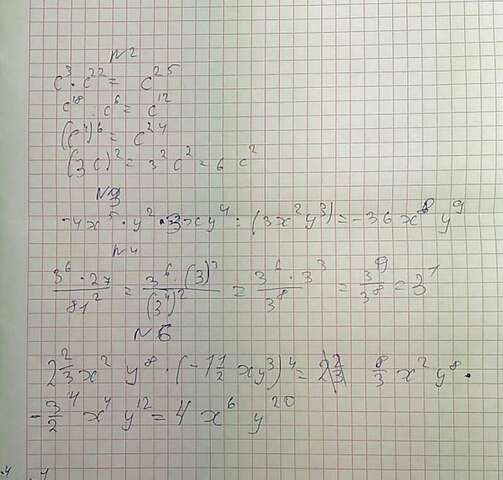 №2
c³ · c²² = c²⁵
c¹⁸ : c⁶ = c¹²
(c⁴)⁶ = c²⁴
(3c)² = 3²c² = 6 c²
№3
-4x⁵ · y² · 3xy⁴ · (3x²y³) = -36 x⁸ y⁹
№4
3⁶ · 27 / 81² = 3⁶ · (3)³ / (3⁴)² = 3⁶ · 3³ / 3⁸ = 3⁹ / 3⁸ = 3¹
№6
2 2/3 x² y⁸ · (-1 1/2 xy³)⁴ = 8/3 x² y⁸ ·
- 3/2⁴ x⁴ y¹² = 4 x⁶ y²⁰